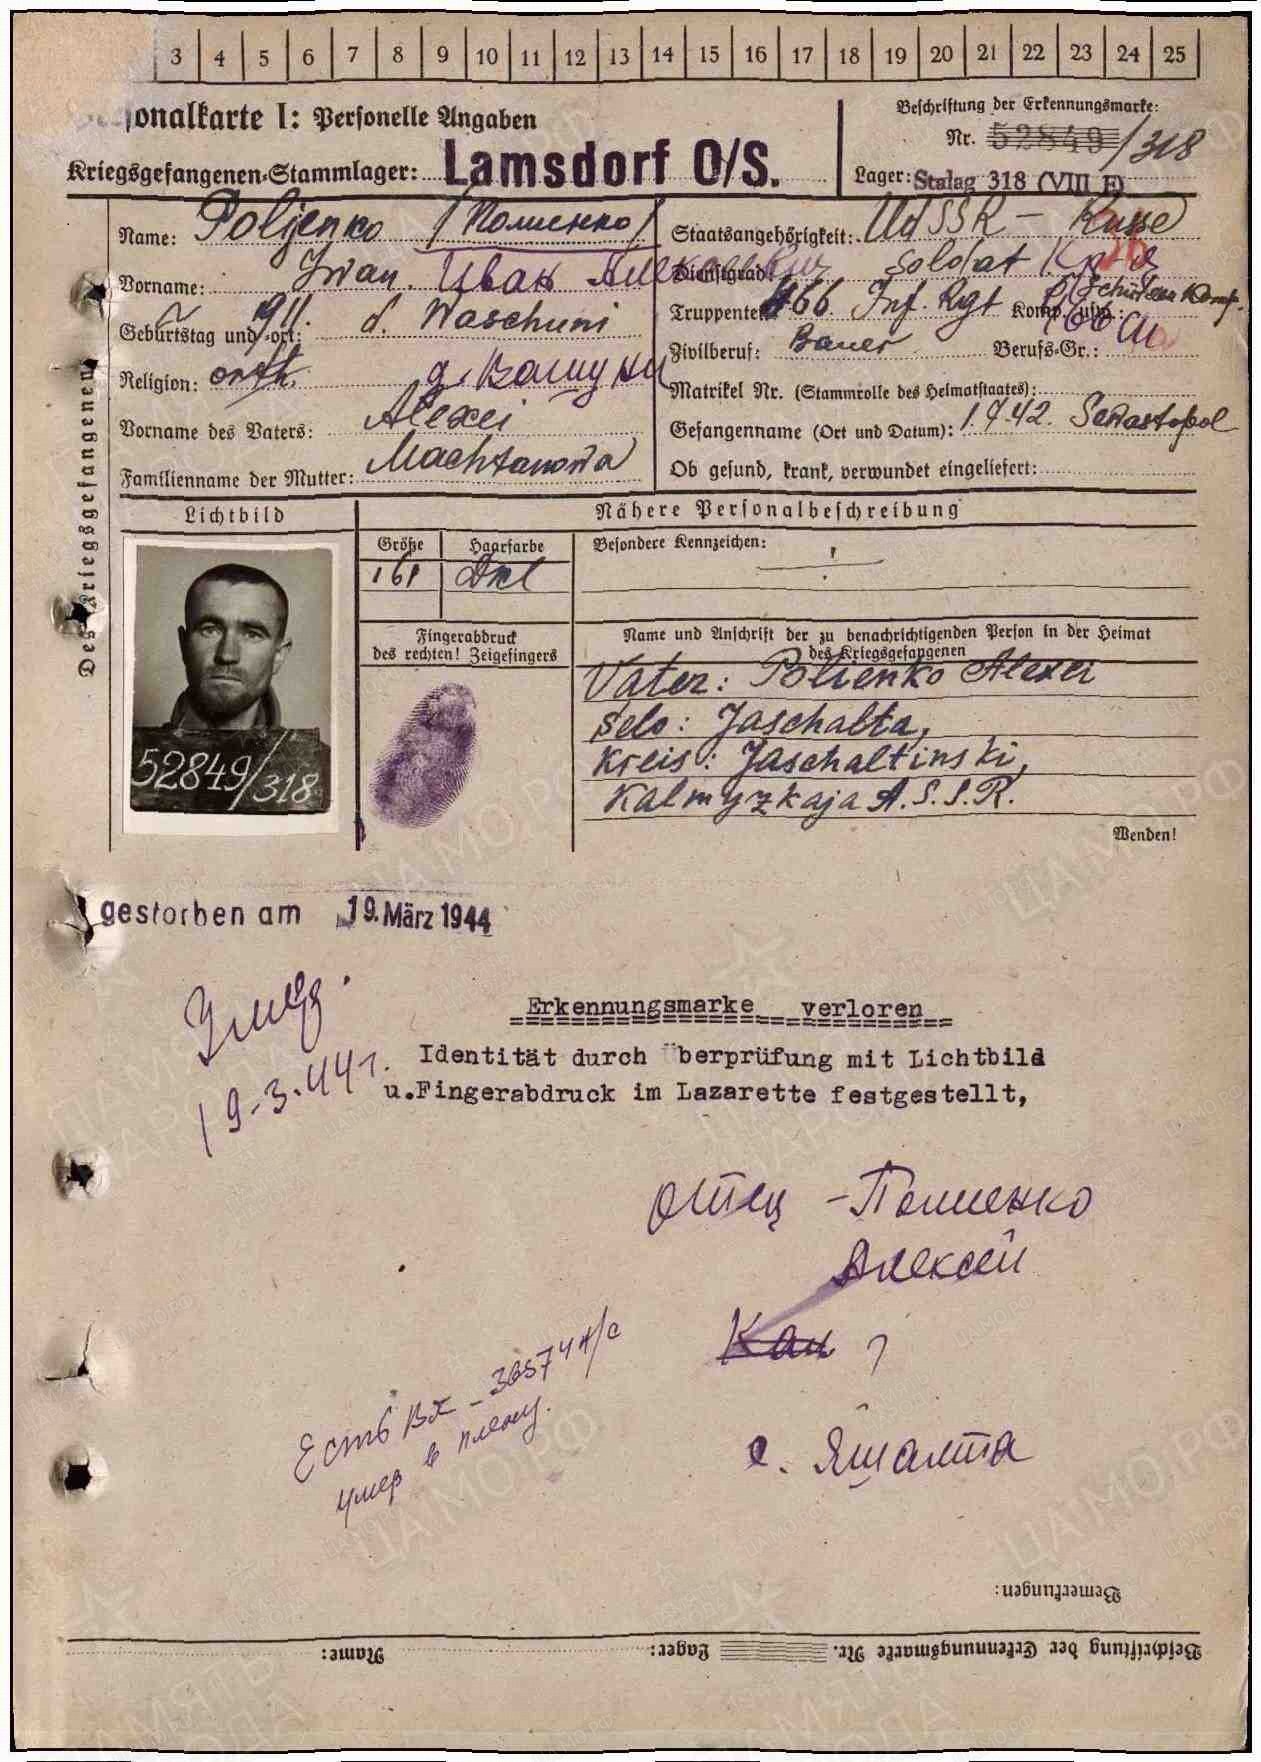 3 4 5 6 7 8 9 10 11 12 13 14 15 16 17 18 19 20 21 22 23 24 25
Personalkarte I: Personelle Angaben
Kriegsgefangenen-Stammlager: Lamsdorf O/S.
Beschriftung der Erkennungsmarke:
Nr. 52849/318
Lager: Stalag 318 (VIII F)
Des Kriegsgefangenen
Name: Poljenko (Полиенко)
Vorname: Iwan. Иван
Geburtstag und -ort: 1911. d. Waschuni
Religion: orth. д. Вашуни
Vorname des Vaters: Alexei
Familienname der Mutter: Machtanowa
Staatsangehörigkeit: UdSSR - Russe
Dienstgrad: Soldat
Truppenteil: 466 Inf. Rgt Komp. usw.: Schützen Komp.
Zivilberuf: Bauer Berufs-Gr.:
Matrikel Nr. (Stammrolle des Heimatstaates):
Gefangenname (Ort und Datum): 1.7.42. Sewastopol
Ob gesund, krank, verwundet eingeliefert:
Lichtbild
Nähere Personalbeschreibung
Größe Haarfarbe Besondere Kennzeichen:
161 Dkl
Fingerabdruck
des rechten! Zeigefingers
Name und Anschrift der zu benachrichtigenden Person in der Heimat
des Kriegsgefangenen
Vater: Polienko Alexei
Selo: Jaschalta,
Kreis: Jaschaltinski,
Kalmyzkaja A.S.S.R.
52849/318
Wenden!
gestorben am 19. März 1944
Умер.
19-3-44 г.
Erkennungsmarke verloren
Identität durch Überprüfung mit Lichtbild
u.Fingerabdruck im Lazarette festgestellt,
Отец - Полиенко
Алексей
с. Яшалта
Есть Вх - 36574 н/с
умер в плену.
Bemerkungen:
Beschriftung der Erkennungsmarke Nr. Lager: Name: